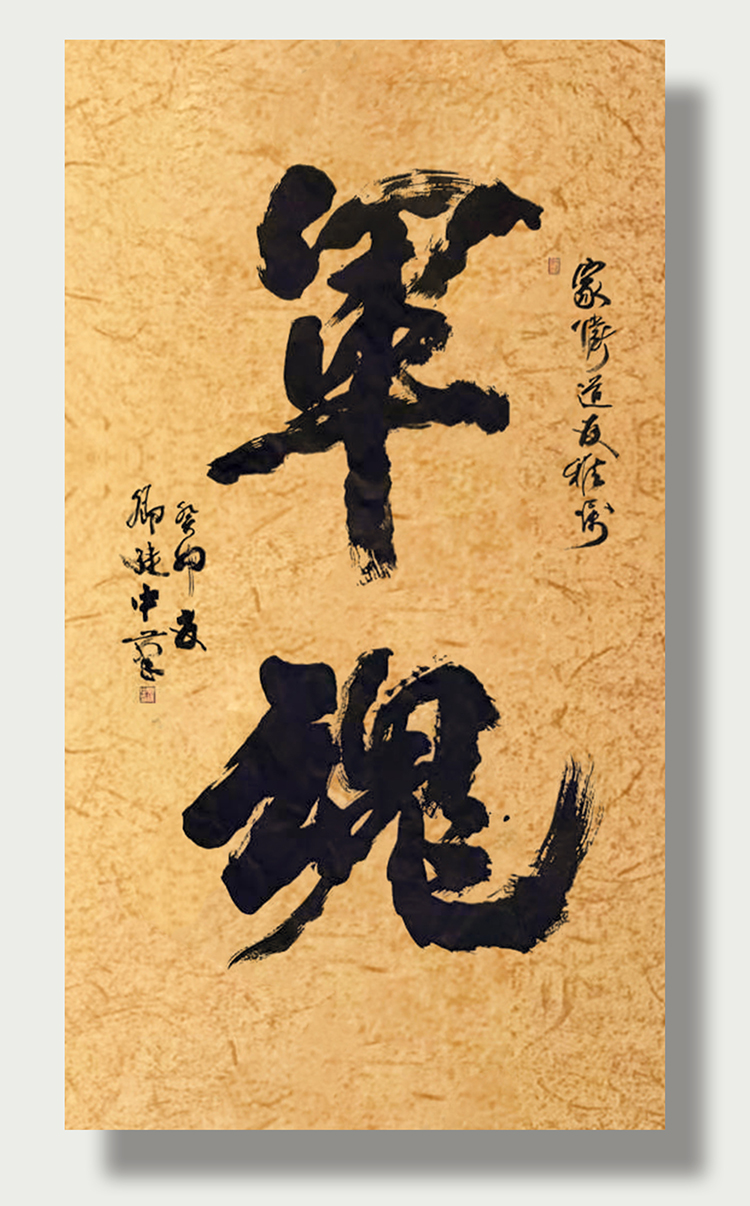 家勝道友雅属
軍魂
癸卯夏
卿建中